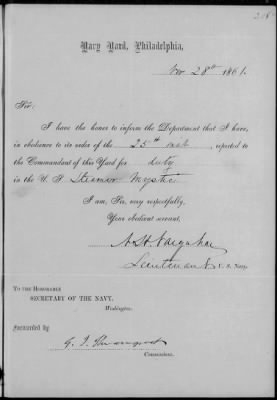 Navy Yard, Philadelphia,
Nov 28th 1861.
Sir:
I have the honor to inform the Department that I have,
in obedience to its order of the 25th inst, reported to
the Commandant of this Yard for duty
in the U. S. Steamer Mystic
I am, Sir, very respectfully,
Your obedient servant,
Lieutenant U. S. Navy.
To the Honorable
SECRETARY OF THE NAVY,
Washington.
Forwarded by
Commandant.